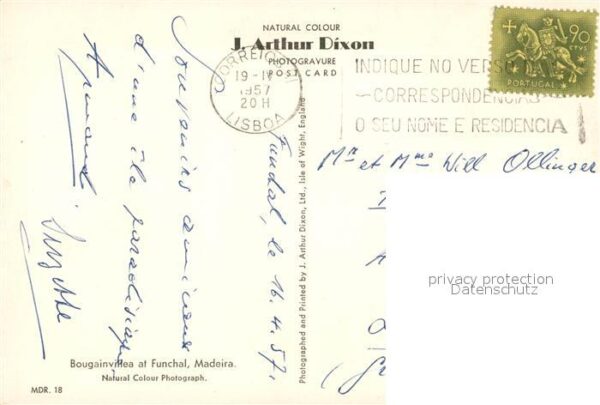 NATURAL COLOUR
J. Arthur Dixon
PHOTOGRAVURE
POST CARD
CORREIOS
19 - IV
1957
20 H
LISBOA
INDIQUE NO VERSO DAS
CORRESPONDENCIAS
O SEU NOME E RESIDENCIA
90
CTVS
PORTUGAL
Funchal, le 16.4.57.
Souvenirs amicaux
d'une île paradisiaque
Armand
Suzette
Mr et Mme Will Ollinger
Photographed and Printed by J. Arthur Dixon, Ltd., Isle of Wight, England
privacy protection
Datenschutz
Bougainvillea at Funchal, Madeira.
Natural Colour Photograph.
MDR. 18